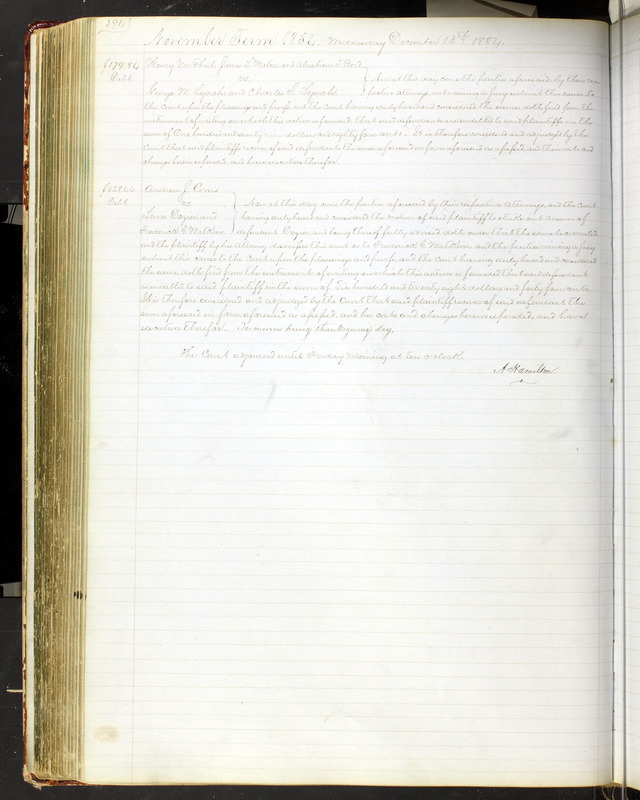 November Term 1854. Wednesday December 13th 1854.
179.84 Henry
Debt vs Now at this day come the parties aforesaid by their res-
George M. Lynch and Charles S. Lynch pective attorneys, and waiving a jury submit this cause to
the Court upon the pleadings and proofs and the Court having duly heard and considered the same doth find from the
instrument of writing on which this action is founded, that said defendants are indebted to said plaintiffs in the
sum of One hundred and seventy nine dollars and eighty four cents. It is therefore considered and adjudged by the
Court that said plaintiffs recover of said defendants the sum aforesaid in form aforesaid as assessed, and their costs and
charges herein expended, and have execution therefor.
Andrew J.
Debt vs Now at this day come the parties aforesaid by their respective Attorneys, and the Court
Louis and having duly heard and considered the motion of said plaintiff to strike out answer of
Frederick defendant and being thereof fully advised doth order that the same be sustained
and the plaintiff by his attorney dismisses this suit as to Frederick and the parties waiving a jury
submit this cause to the Court upon the pleadings and proofs, and the Court having duly heard and considered
the same doth find from the instrument of writing on which this action is founded that said defendant
is indebted to said plaintiff in the sum of Six hundred and twenty eight dollars and forty four cents.
It is therefore considered and adjudged by the Court that said plaintiff recover of said defendant the
sum aforesaid in form aforesaid as assessed, and his costs and charges herein expended, and have
execution therefor. day.
The Court adjourned until Friday Morning at ten o'clock.
A Hamilton